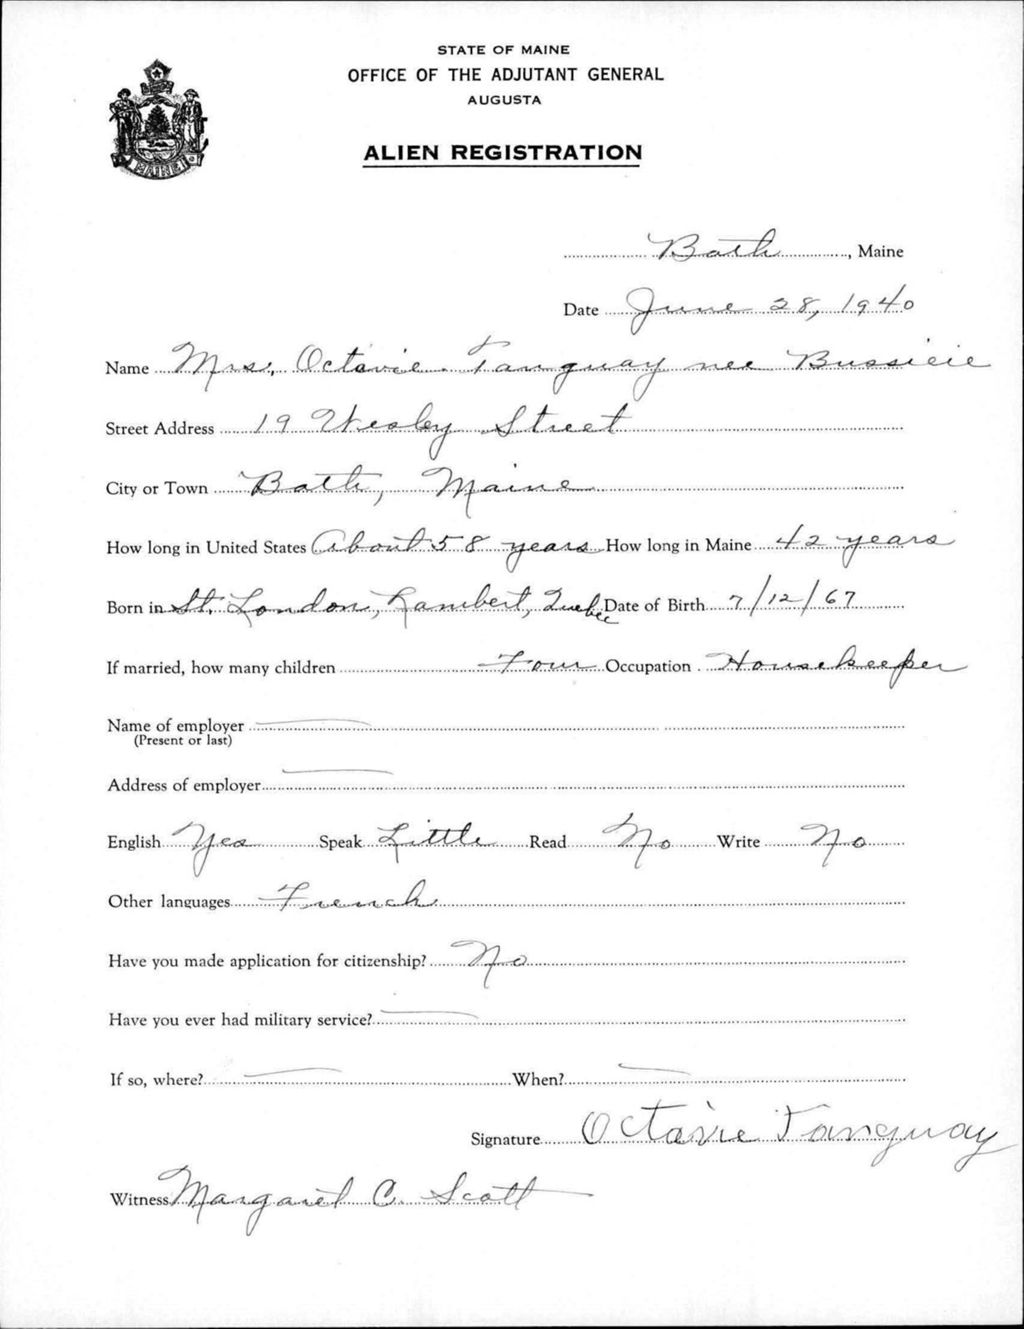 STATE OF MAINE
OFFICE OF THE ADJUTANT GENERAL
AUGUSTA
ALIEN REGISTRATION
MAINE
Bath, Maine
Date June 28, 1940
Name Mrs. Octavie Tanguay nee Bussieie
Street Address 19 Wesley Street
City or Town Bath, Maine
How long in United States About 58 years How long in Maine 42 years
Born in St. London, Lambert, Quebec Date of Birth 7/12/67
If married, how many children Four Occupation Housekeeper
Name of employer
(Present or last)
Address of employer
English Yes Speak Little Read No Write No
Other languages French
Have you made application for citizenship? No
Have you ever had military service?
If so, where? When?
Signature Octavie Tanguay
Witness Margaret C. Scott